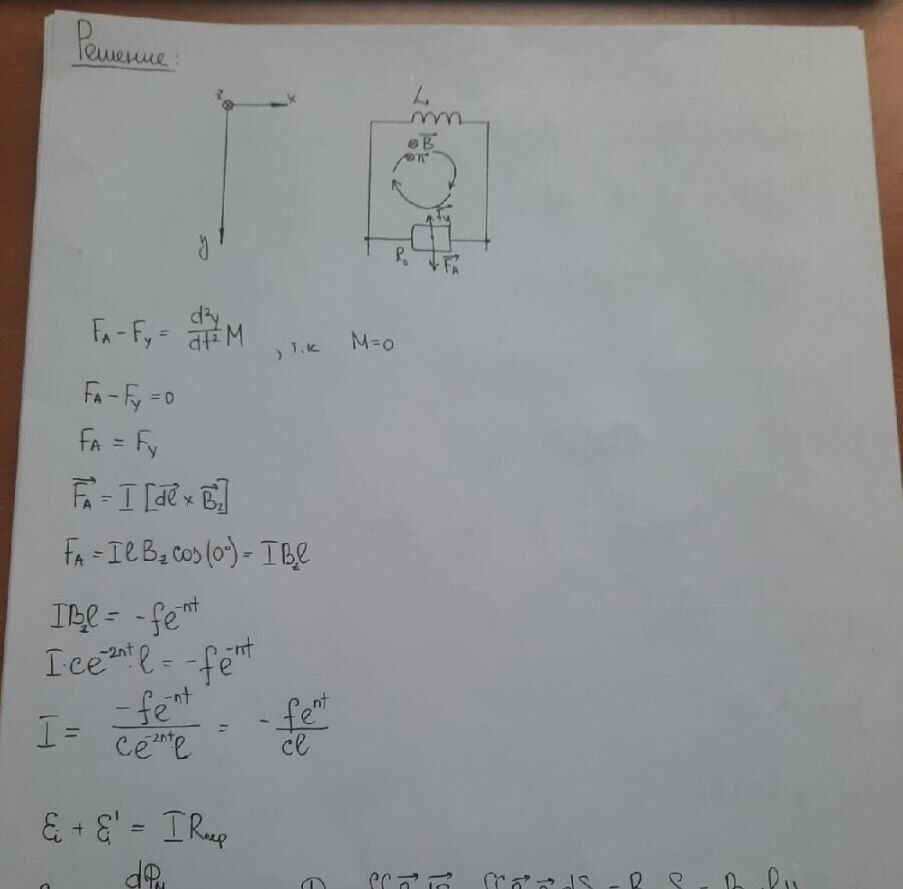 Решение:
z x
y
L
B
n
F_y
R₀ F_A
F_A - F_y = d²y/dt² M , т.к M=0
F_A - F_y = 0
F_A = F_y
F_A = I [dl × B_z]
F_A = I l B_z cos(0°) = I B_z l
I B_z l = -fe^-nt
I·ce^-2nt·l = -fe^-nt
I = -fe^-nt / ce^-2nt l = - fe^nt / cl
ℰ_i + ℰ_i' = I R_пер